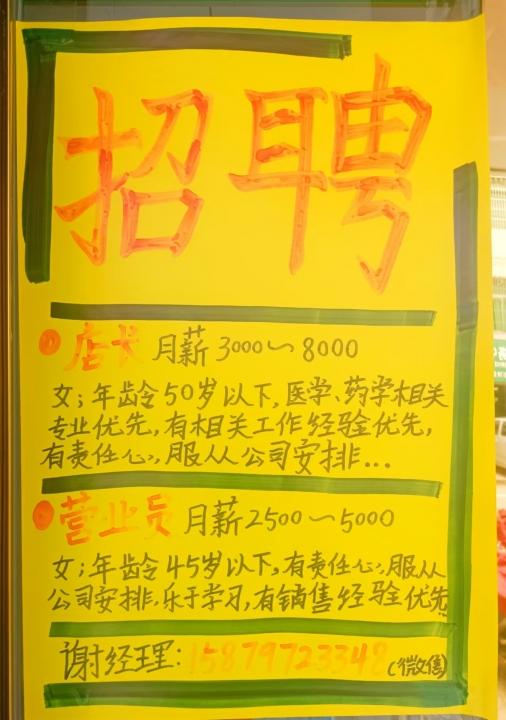 招聘
①店长 月薪3000~8000
女；年龄50岁以下，医学、药学相关
专业优先，有相关工作经验优先，
有责任心，服从公司安排...
②营业员 月薪2500~5000
女；年龄45岁以下，有责任心，服从
公司安排，乐于学习，有销售经验优先
谢经理：15879723348（微信）